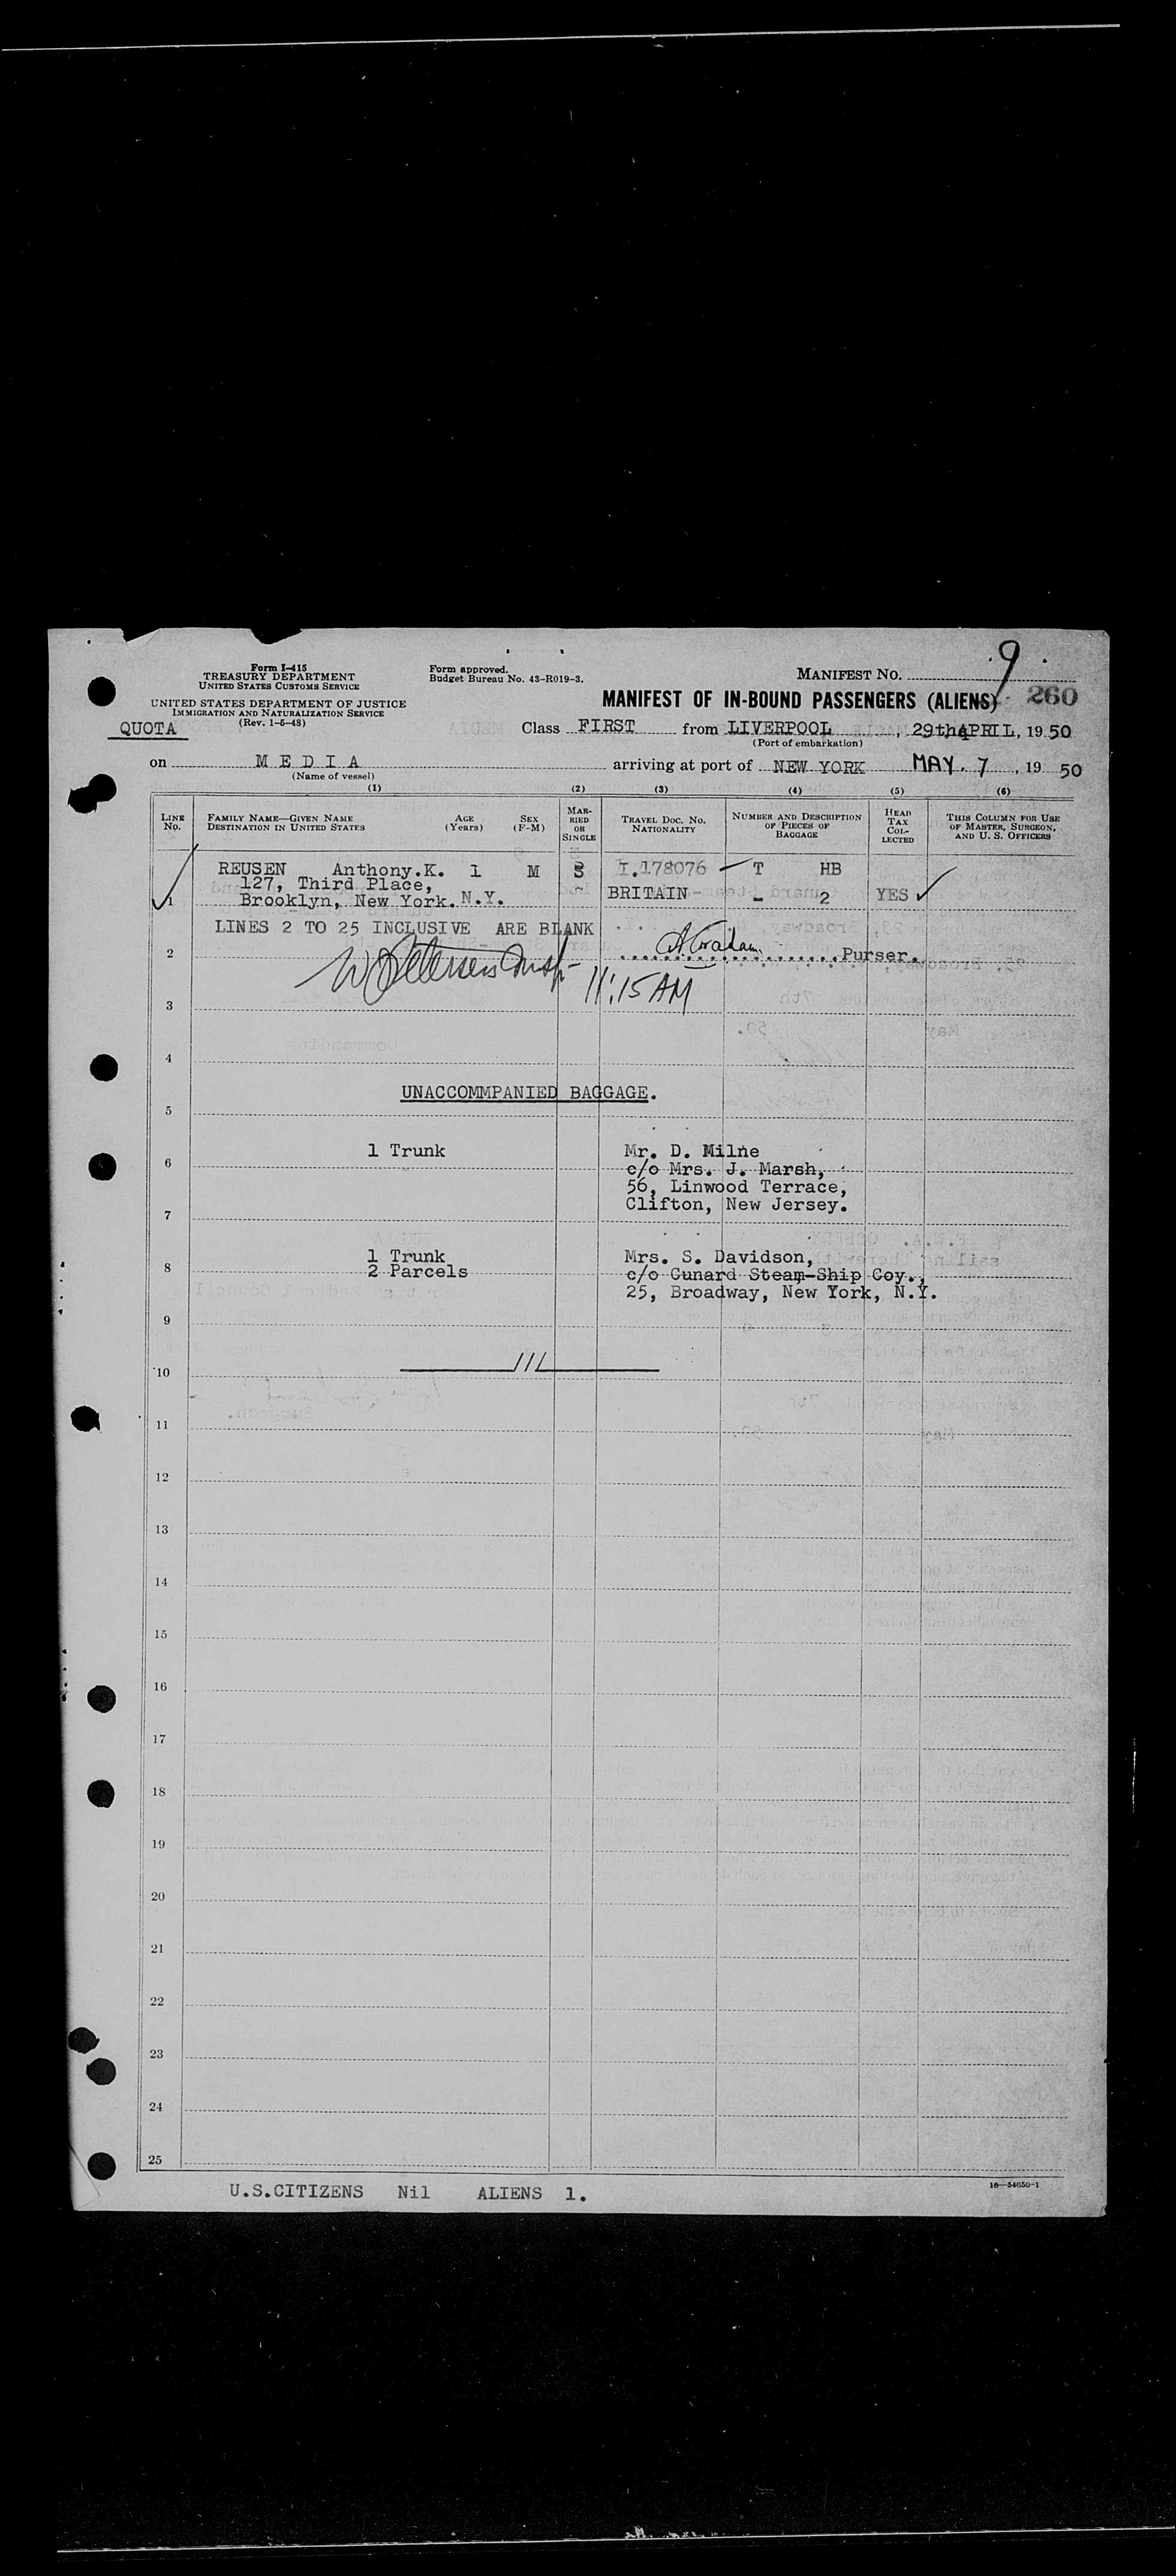 9
Form I-415
TREASURY DEPARTMENT
UNITED STATES CUSTOMS SERVICE
Form approved.
Budget Bureau No. 43-R019-3.
MANIFEST NO.
UNITED STATES DEPARTMENT OF JUSTICE
IMMIGRATION AND NATURALIZATION SERVICE
(Rev. 1-6-48)
MANIFEST OF IN-BOUND PASSENGERS (ALIENS) 260
QUOTA
Class FIRST from LIVERPOOL, 29th APRIL, 1950
(Port of embarkation)
on MEDIA arriving at port of NEW YORK MAY. 7, 1950
(Name of vessel)
(1) (2) (3) (4) (5) (6)
LINE No. FAMILY NAME—GIVEN NAME DESTINATION IN UNITED STATES AGE (Years) SEX (F-M) MARRIED OR SINGLE TRAVEL DOC. NO. NATIONALITY NUMBER AND DESCRIPTION OF PIECES OF BAGGAGE HEAD TAX COLLECTED THIS COLUMN FOR USE OF MASTER, SURGEON, AND U. S. OFFICERS
REUSEN Anthony.K. 1 M S I.178076 T HB
127, Third Place, BRITAIN - 2 YES
1 Brooklyn, New York. N.Y.
LINES 2 TO 25 INCLUSIVE ARE BLANK
2 Purser.
11:15 AM
3
4
UNACCOMMPANIED BAGGAGE.
5
1 Trunk Mr. D. Milne
6 c/o Mrs. J. Marsh,
56, Linwood Terrace,
Clifton, New Jersey.
7
1 Trunk Mrs. S. Davidson,
8 2 Parcels c/o Cunard Steam-Ship Coy.,
25, Broadway, New York, N.Y.
9
10 ///
11
12
13
14
15
16
17
18
19
20
21
22
23
24
25
U.S.CITIZENS Nil ALIENS 1.
16—54650-1